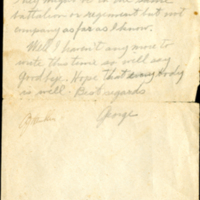 They might be in the same
battalion or regement but not
company as far as I know.
Well I haven't any more to
write this time so will say
Goodbye. Hope that everybody
is well. Best regards
George